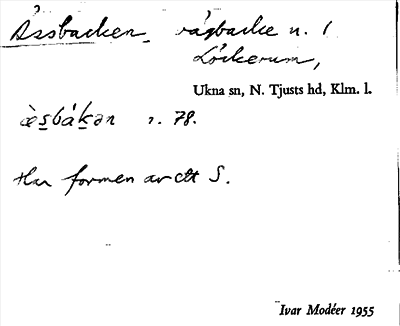 Assbacken, vägbacke n. 1
Löckerum,
Ukna sn, N. Tjusts hd, Klm. l.
æ̀s̱bák̯ən s. 78.
Har formen av ett S.
Ivar Modéer 1955